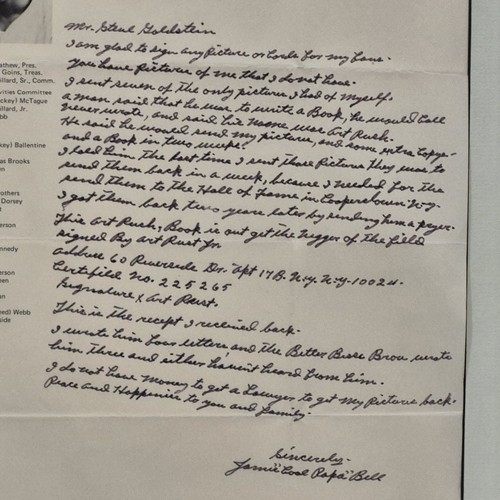 Mr. Steve Goldstein
I am glad to sign any Picture or Cards for my Fans.
you have Pictures of me that I do not have.
I sent seven of the only picture I had of myself.
a man said that he was to write a Book, he would call
never wrote, and said his name was Art Rush.
He said he would send my pictures, and some extra Copys
and a Book in two weeks?
I told him the last time I sent those Pictures they was to
send them back in a week, because I needed for the
send them to the Hall of Fame in Cooperstown N-y.
I got them back two years later by sending him a
This Art Rush, Book is out get the Nigger of the field
signed By Art Rust Jr.
address 60 Riverside Dr. Apt 17 B. N.y. N-y-10024.
Certifild No. 225265
signature x Art Rust.
This is the recept I received back.
I wrote him four letters, and the Better Busie Brow wrote
him three and either havent heard from him.
I do not have money to get a Lawyer to get my Picture back.
Peace and Happenies to you and family.
Sincerely-
James "Cool Papa" Bell
athew, Pres.
Goins, Treas.
illard, Sr., Comm.
ivities Committee
ckey) McTague
illard, Jr.
bb
key) Ballentine
as Brooks
en
others
Dorsey
t
erson
nnedy
erson
en
an
eed) Webb
side